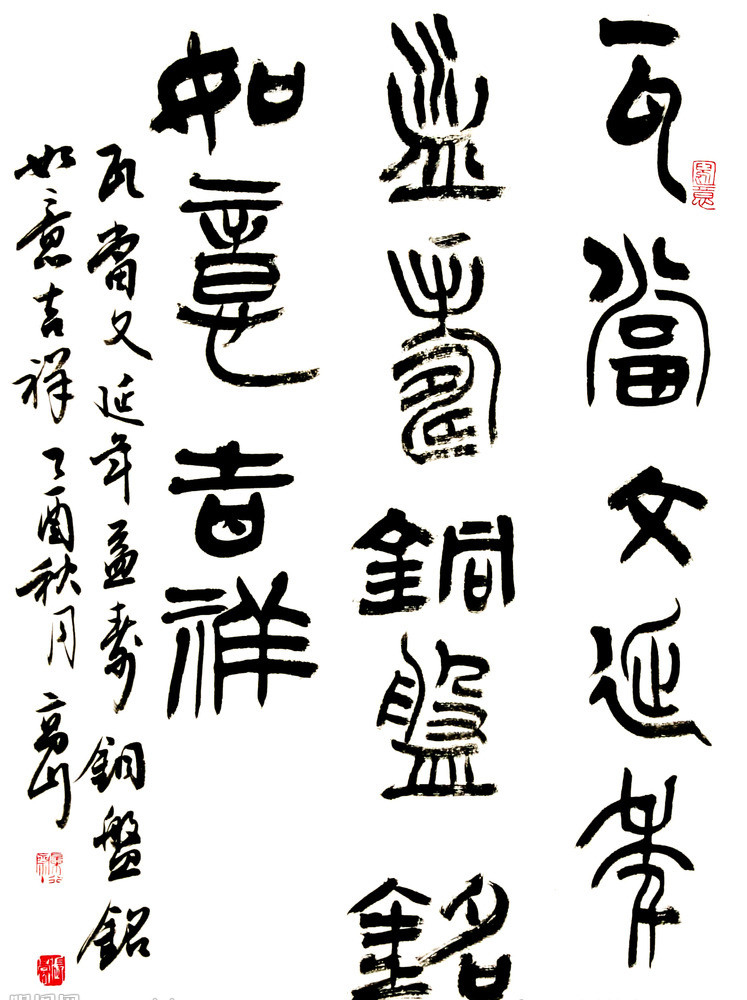 瓦當文延年
益壽銅盤銘
如意吉祥
瓦當文延年益壽銅盤銘
如意吉祥丁酉秋月高山